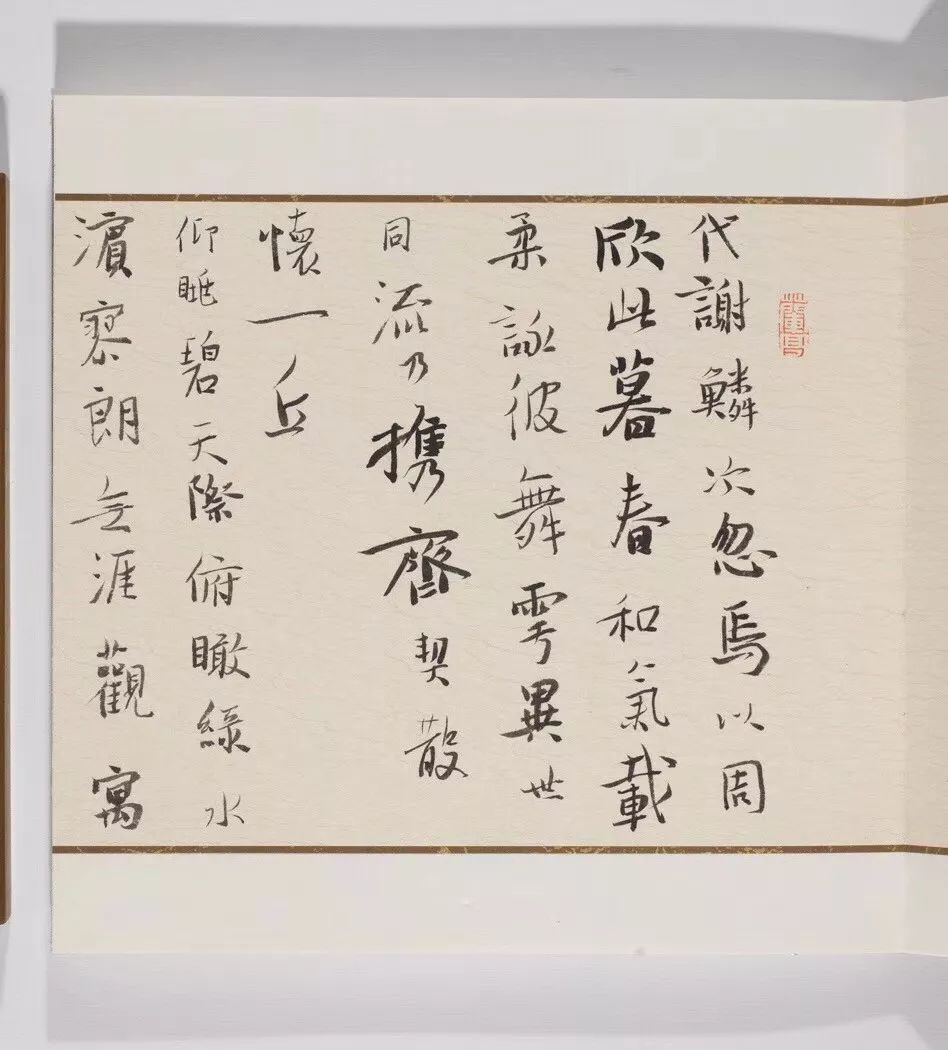 蘭亭
代謝鱗次忽焉以周
欣此暮春和氣載
柔詠彼舞雩異世
同流乃携齊契散
懷一丘
仰眺碧天際俯瞰綠水
濱寥朗无涯觀寓